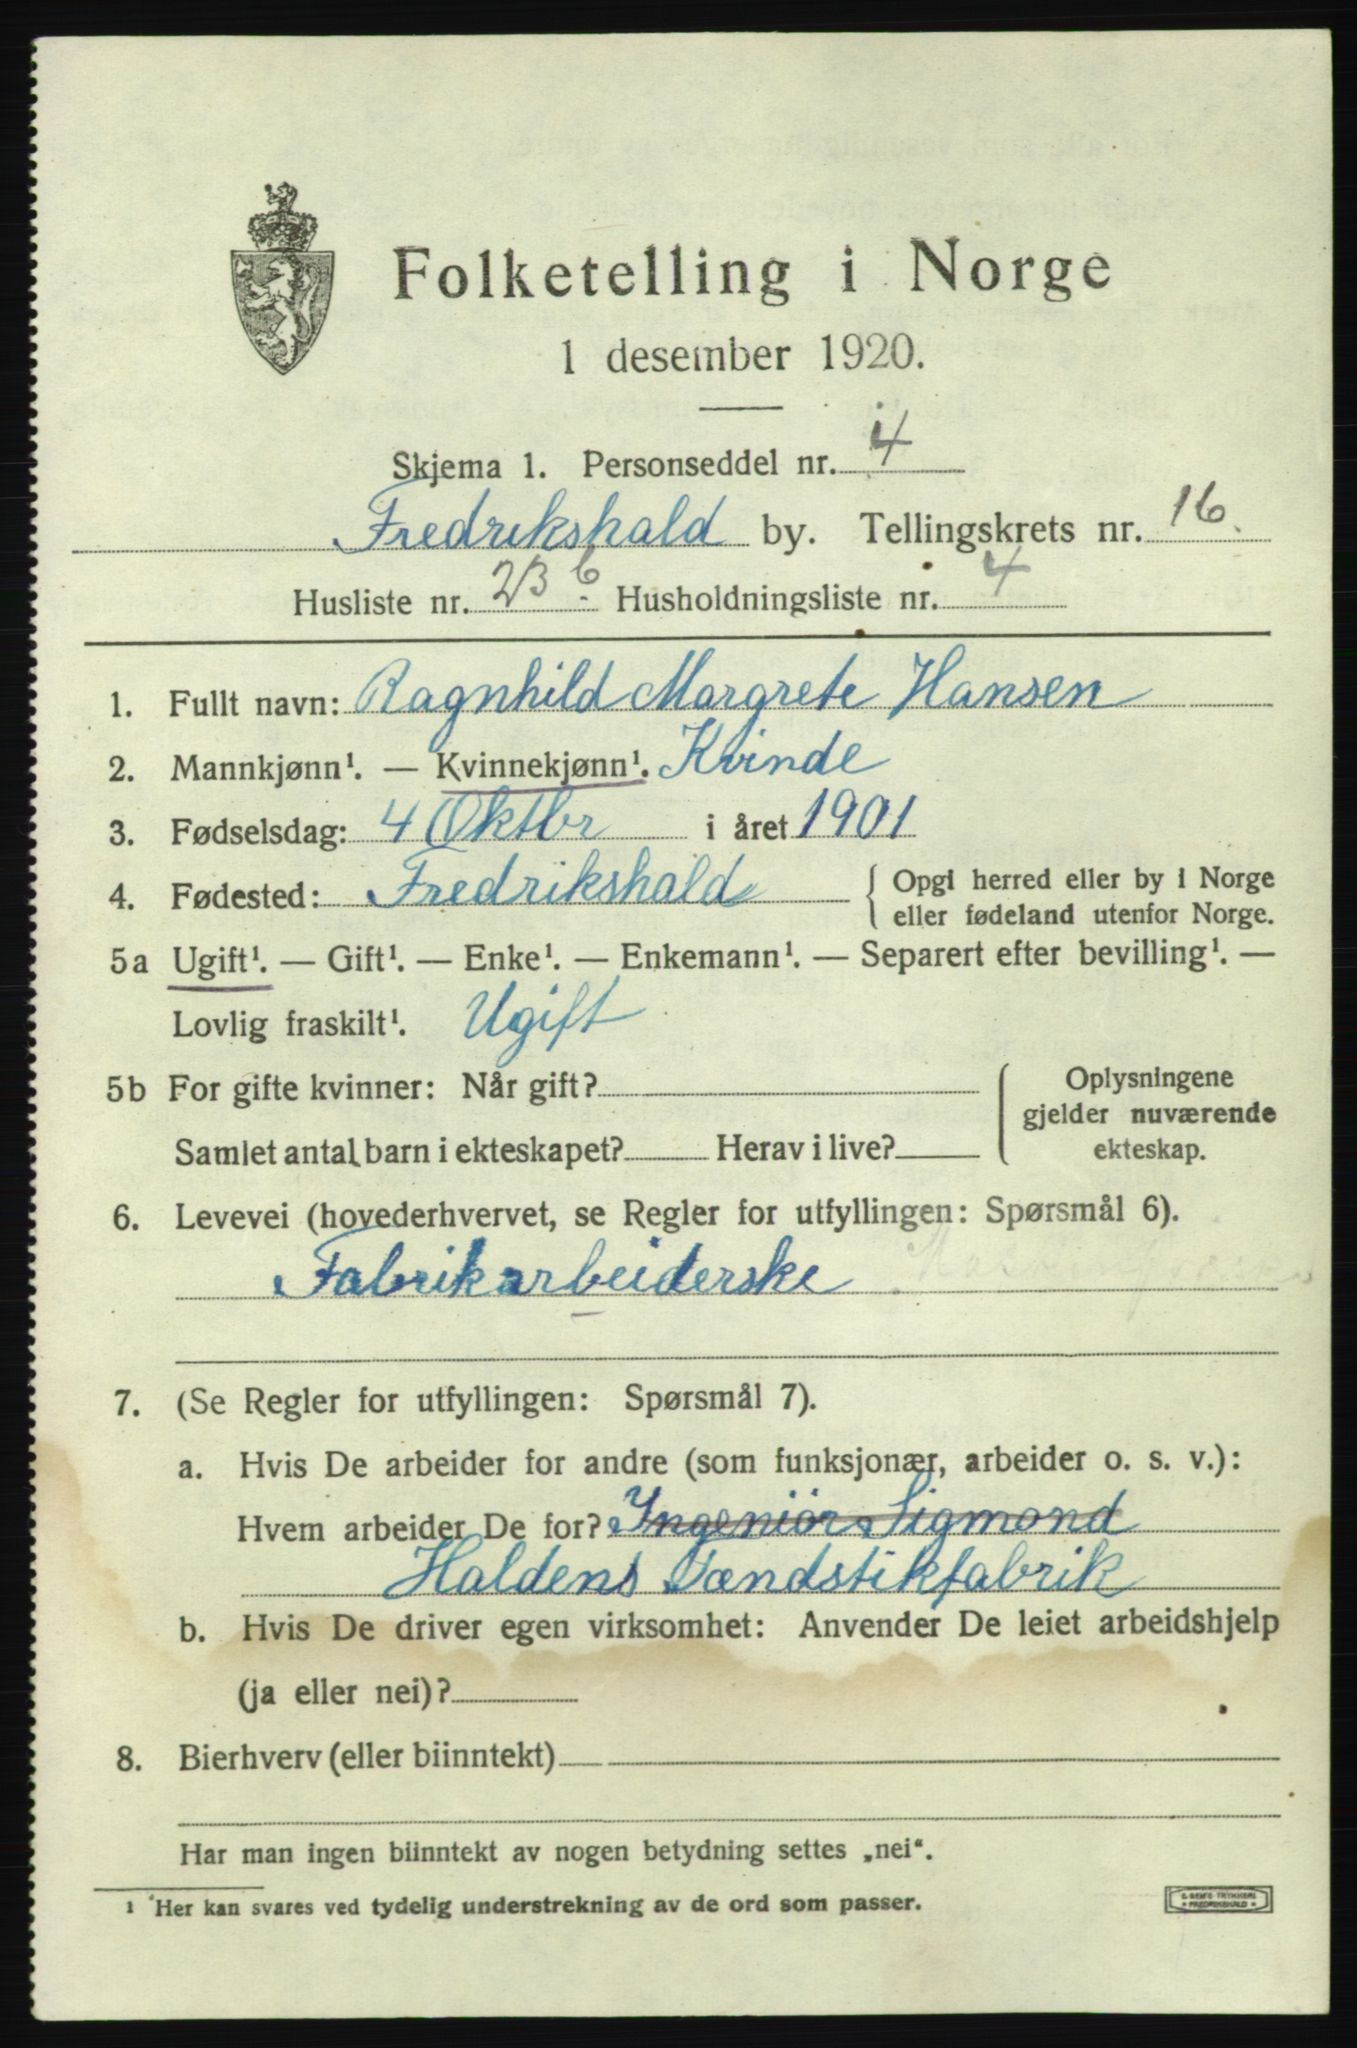 Folketelling i Norge
1 desember 1920.
Skjema 1. Personseddel nr. 4
Fredrikshald by. Tellingskrets nr. 16.
Husliste nr. 23 b. Husholdningsliste nr. 4
1. Fullt navn: Ragnhild Margrete Hansen
2. Mannkjønn¹. — Kvinnekjønn¹. Kvinde
3. Fødselsdag: 4 Oktbr i året 1901
4. Fødested: Fredrikshald { Opgi herred eller by i Norge
eller fødeland utenfor Norge.
5a Ugift¹. — Gift¹. — Enke¹. — Enkemann¹. — Separert efter bevilling¹. —
Lovlig fraskilt¹. Ugift
5b For gifte kvinner: Når gift?
Samlet antal barn i ekteskapet? Herav i live?
Oplysningene
gjelder nuværende
ekteskap.
6. Levevei (hovederhvervet, se Regler for utfyllingen: Spørsmål 6).
Fabrikarbeiderske
7. (Se Regler for utfyllingen: Spørsmål 7).
a. Hvis De arbeider for andre (som funksjonær, arbeider o. s. v.):
Hvem arbeider De for? Ingeniör Sigmond
Haldens Tændstikfabrik
b. Hvis De driver egen virksomhet: Anvender De leiet arbeidshjelp
(ja eller nei)?
8. Bierhverv (eller biinntekt)
Har man ingen biinntekt av nogen betydning settes „nei“.
¹ Her kan svares ved tydelig understrekning av de ord som passer.
E. SEM'S TRYKKERI
FREDRIKSHALD